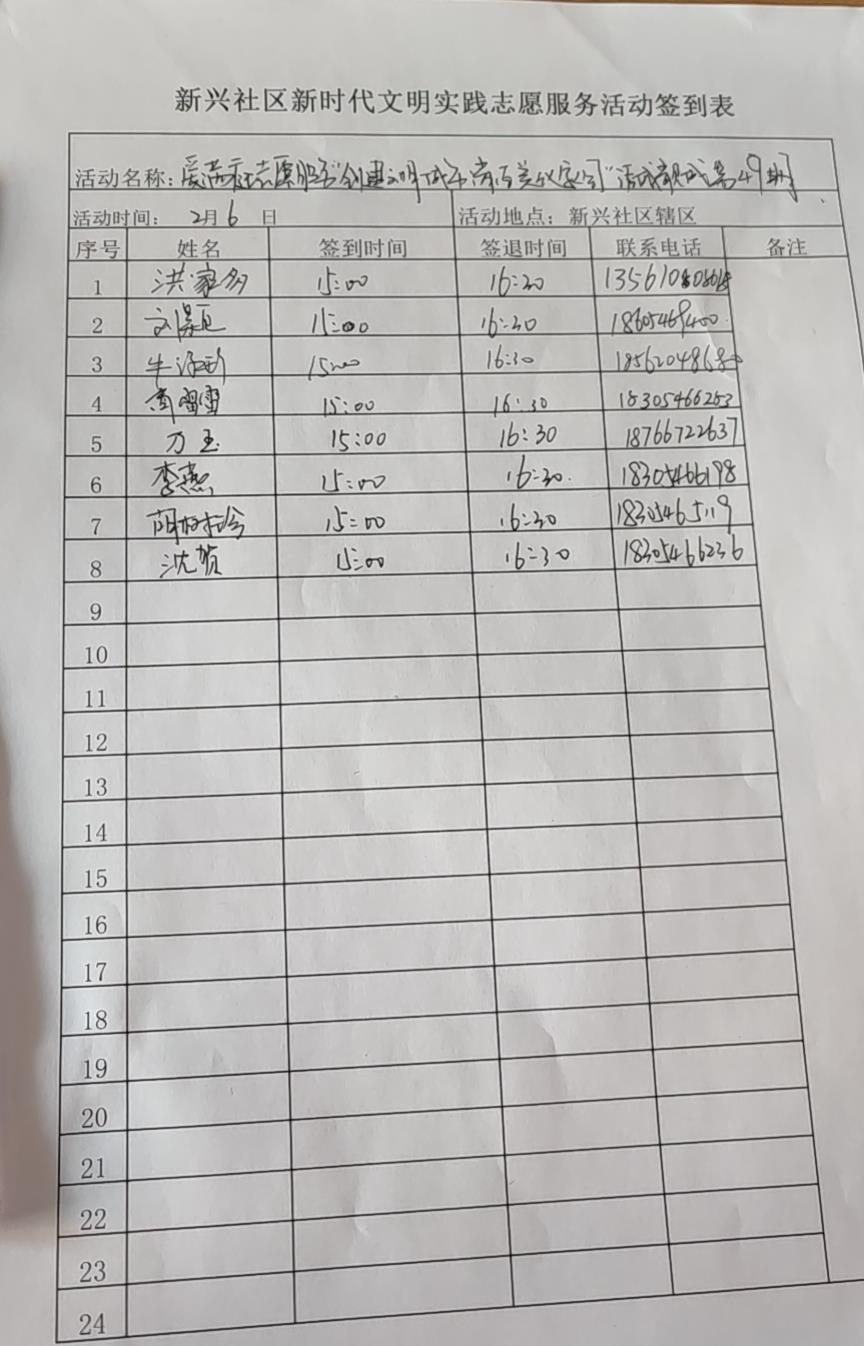 新兴社区新时代文明实践志愿服务活动签到表
活动名称: 志愿服务"创建文明城市 活动 第49期
活动时间: 2月6日 活动地点: 新兴社区辖区
序号 姓名 签到时间 签退时间 联系电话 备注
1 洪家多 15:00 16:30
2 刘颖 15:00 16:30 18605469400
3 牛 15:00 16:30
4 雷雷 15:00 16:30 18305466253
5 万玉 15:00 16:30 18766722637
6 李燕 15:00 16:30 18305466198
7 胡 15:00 16:30 18305465119
8 沈贺 15:00 16:30 18305466236
9
10
11
12
13
14
15
16
17
18
19
20
21
22
23
24